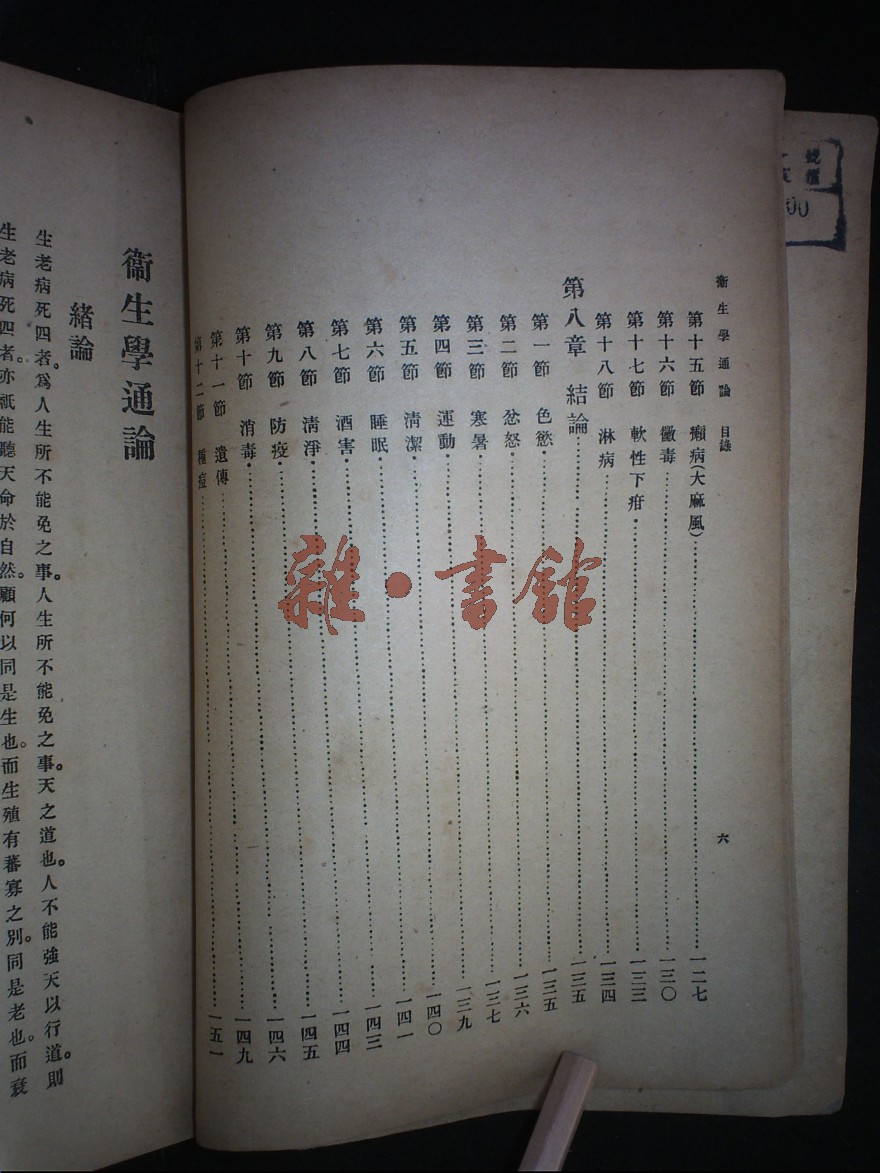 衞生學通論 目錄 六
第十五節 癩病(大麻風)……一二七
第十六節 黴毒……一三〇
第十七節 軟性下疳……一三三
第十八節 淋病……一三四
第八章 結論……一三五
第一節 色慾……一三五
第二節 忿怒……一三六
第三節 寒暑……一三七
第四節 運動……一三九
第五節 清潔……一四〇
第六節 睡眠……一四一
第七節 酒害……一四三
第八節 清淨……一四四
第九節 防疫……一四五
第十節 消毒……一四六
第十一節 遺傳……一四九
第十二節 種痘……一五一
衞生學通論
緒論
生老病死四者。爲人生所不能免之事。人生所不能免之事。天之道也。人不能強天以行道。則
生老病死四者。亦祇能聽天命於自然。顧何以同是生也。而生殖有蕃寡之別。同是老也。而衰
雜·書館